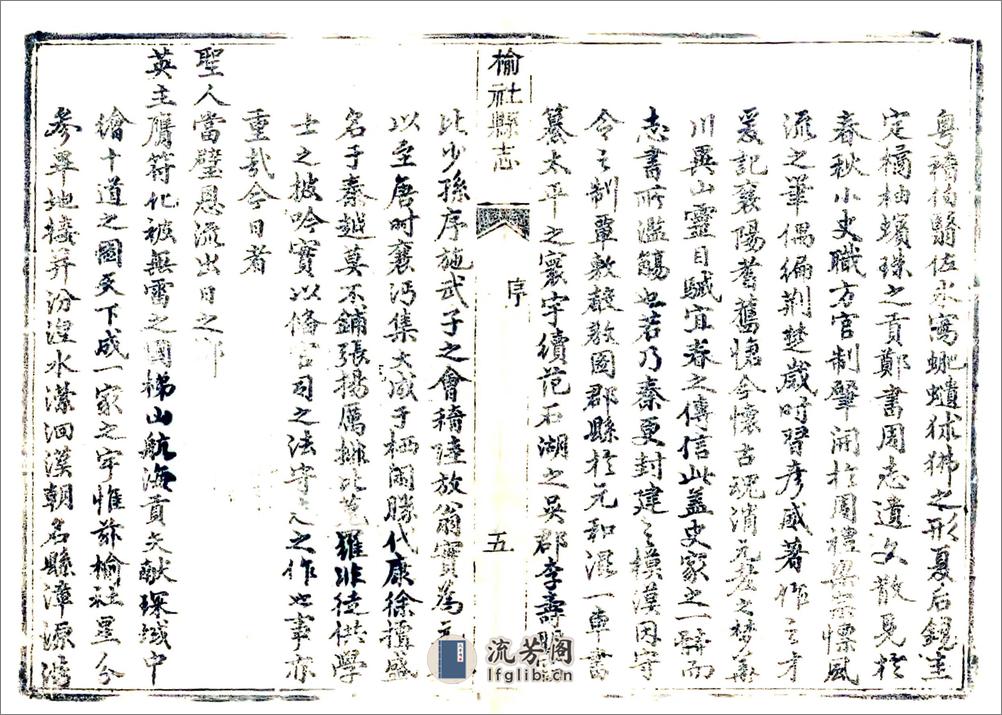 粵稽伯翳佐水寫蜿蟥狖狒之形夏后鏡圭
定橘柚蠙珠之貢鄭書周志遺文散見於
春秋小史職方官制肇開於周禮宗懍風
流之筆偶編荆楚歲時習彥威著作之才
爰記襄陽耆舊愴今懷古現消
川異山靈目馘宜春之傳信此蓋史家之一體而
志書所濫觴也若乃秦更封建之模漢因守
令之制覃敷聲教國郡縣於元和混一車書
纂太平之寰宇續范石湖之吳郡李壽
榆社縣志
序
五
比少孫序施武子之會稽陸放翁實為
以至唐時襄沔集大成于栖閒勝代康徐擅盛
名于秦越莫不鋪張揚厲排比 羅非徒供學
士之披吟實以備官司之法守 之作也事亦
重哉今日者
聖人當璧恩流出日之
英主膺符化被無雷之國梯山航海貢文献琛域中
繪十道之圖天下成一家之宇惟茲榆社星分
參畢地接并汾湼水潆洄漢朝名縣漳源清
流芳阁
lfglib.cn